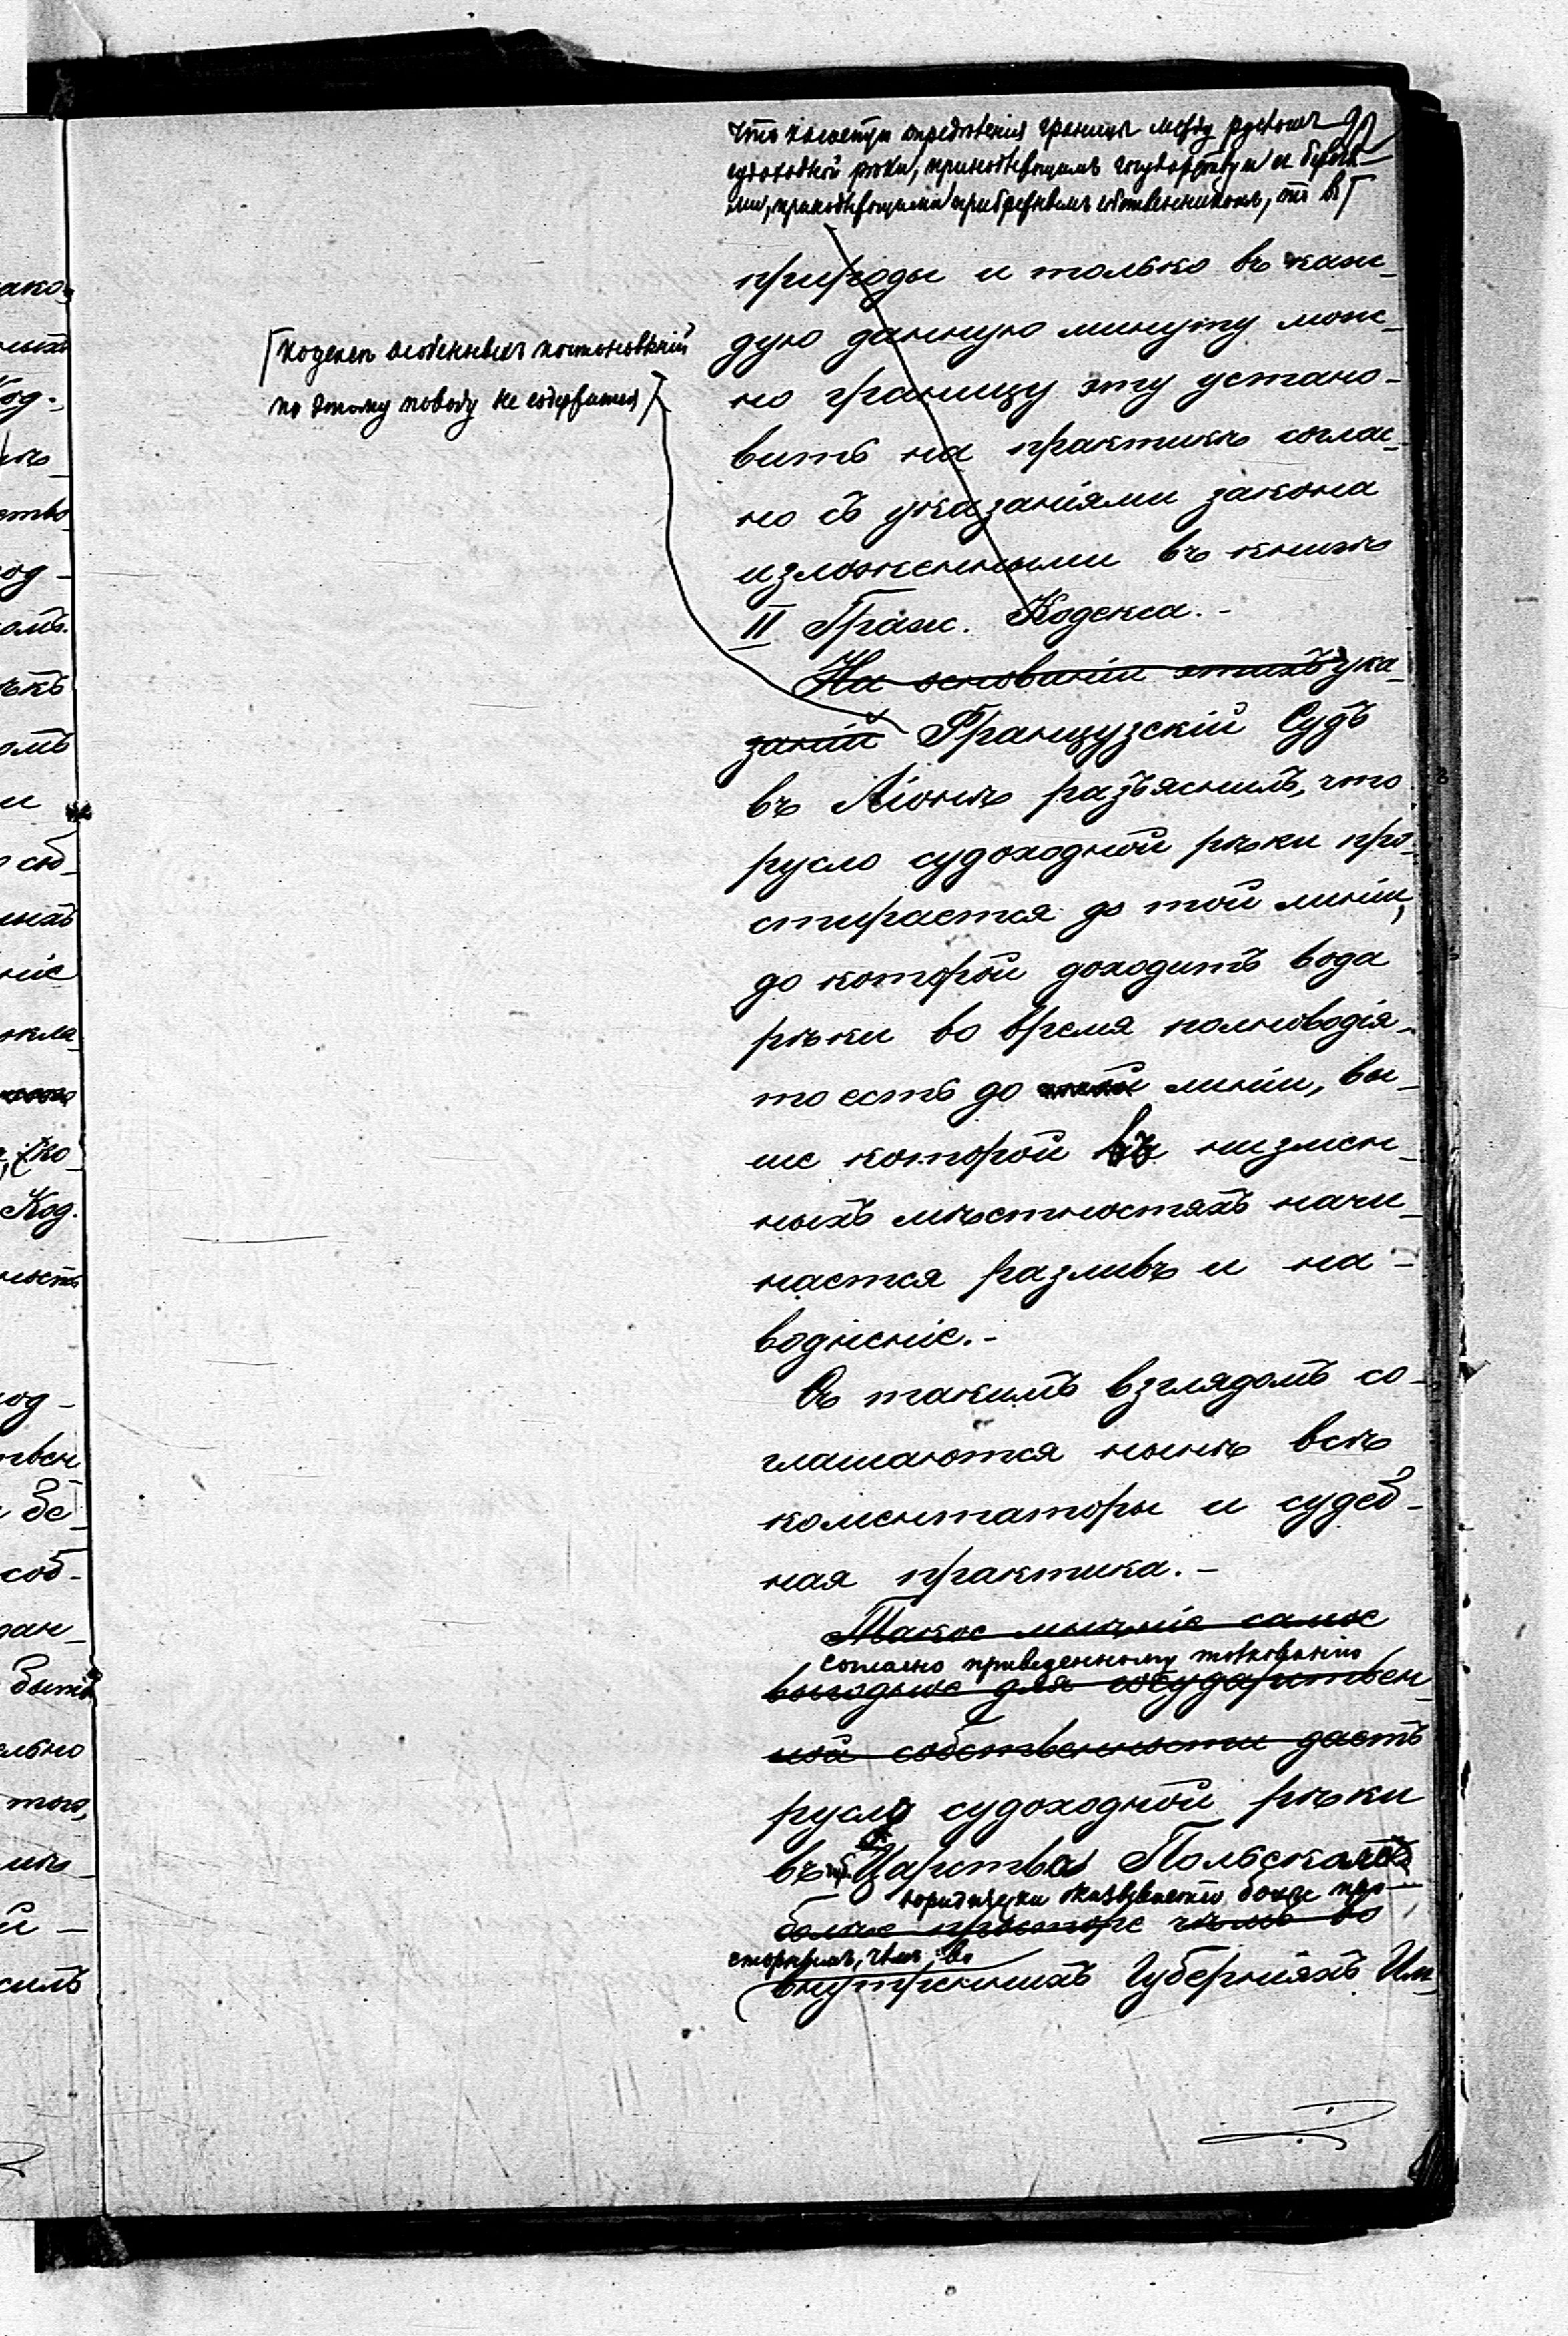 Что касается опредѣленія границы между русломъ
судоходной рѣки, принадлежащимъ государству и берега-
ми, принадлежащими прибрежнымъ собственникамъ, то въ
природы и только въ каж-
дую данную минуту мож-
но границу эту устано-
вить на практикѣ соглас-
но съ указаніями закона
изложенными въ книгѣ
II Граж. Кодекса.-
[кодексѣ особенныхъ постановленій
по этому поводу не содержится]
На основаніи этихъ ука-
заній Французскій Судъ
въ Ліонѣ разъяснилъ, что
русло судоходной рѣки про-
стирается до той линіи,
до которой доходитъ вода
рѣки во время полноводія-
то есть до линіи, вы-
ше которой въ низмен-
ныхъ мѣстностяхъ начи-
нается разливъ и на-
водненіе.-
Съ такимъ взглядомъ со-
глашаются нынѣ всѣ
коментаторы и судеб-
ная практика.-
Такое мнѣніе самое
согласно приведенному толкованію
выгодное для государствен-
ной собственности даетъ
русло судоходной рѣки
въ Царства Польскаго
юридически оказывается болѣе про-
болѣе просторе чѣмъ во
сторнымъ, чѣмъ во
внутреннихъ Губерніяхъ Им-